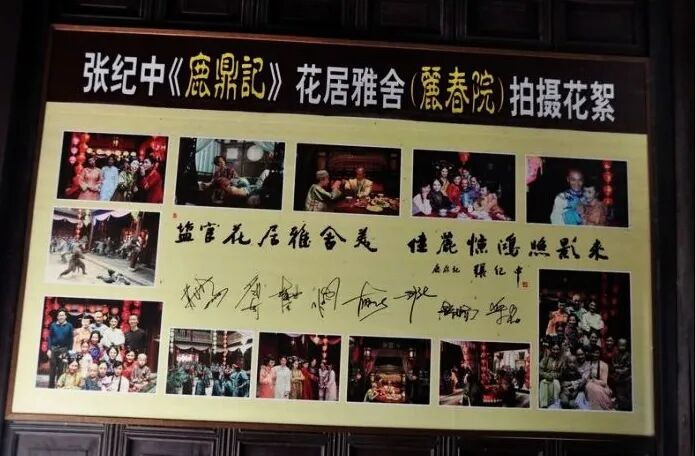 张纪中《鹿鼎記》花居雅舍(麗春院)拍摄花絮
盐官花居雅舍美 佳麗惊鴻照影来
鹿鼎記 張紀中